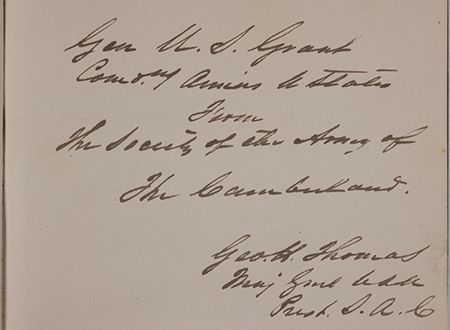 Gen U. S. Grant
Comdg Armies U States
From
The Society of the Army of
The Cumberland.
Geo. H. Thomas
Maj Genl U S A
Prest. S. A. C